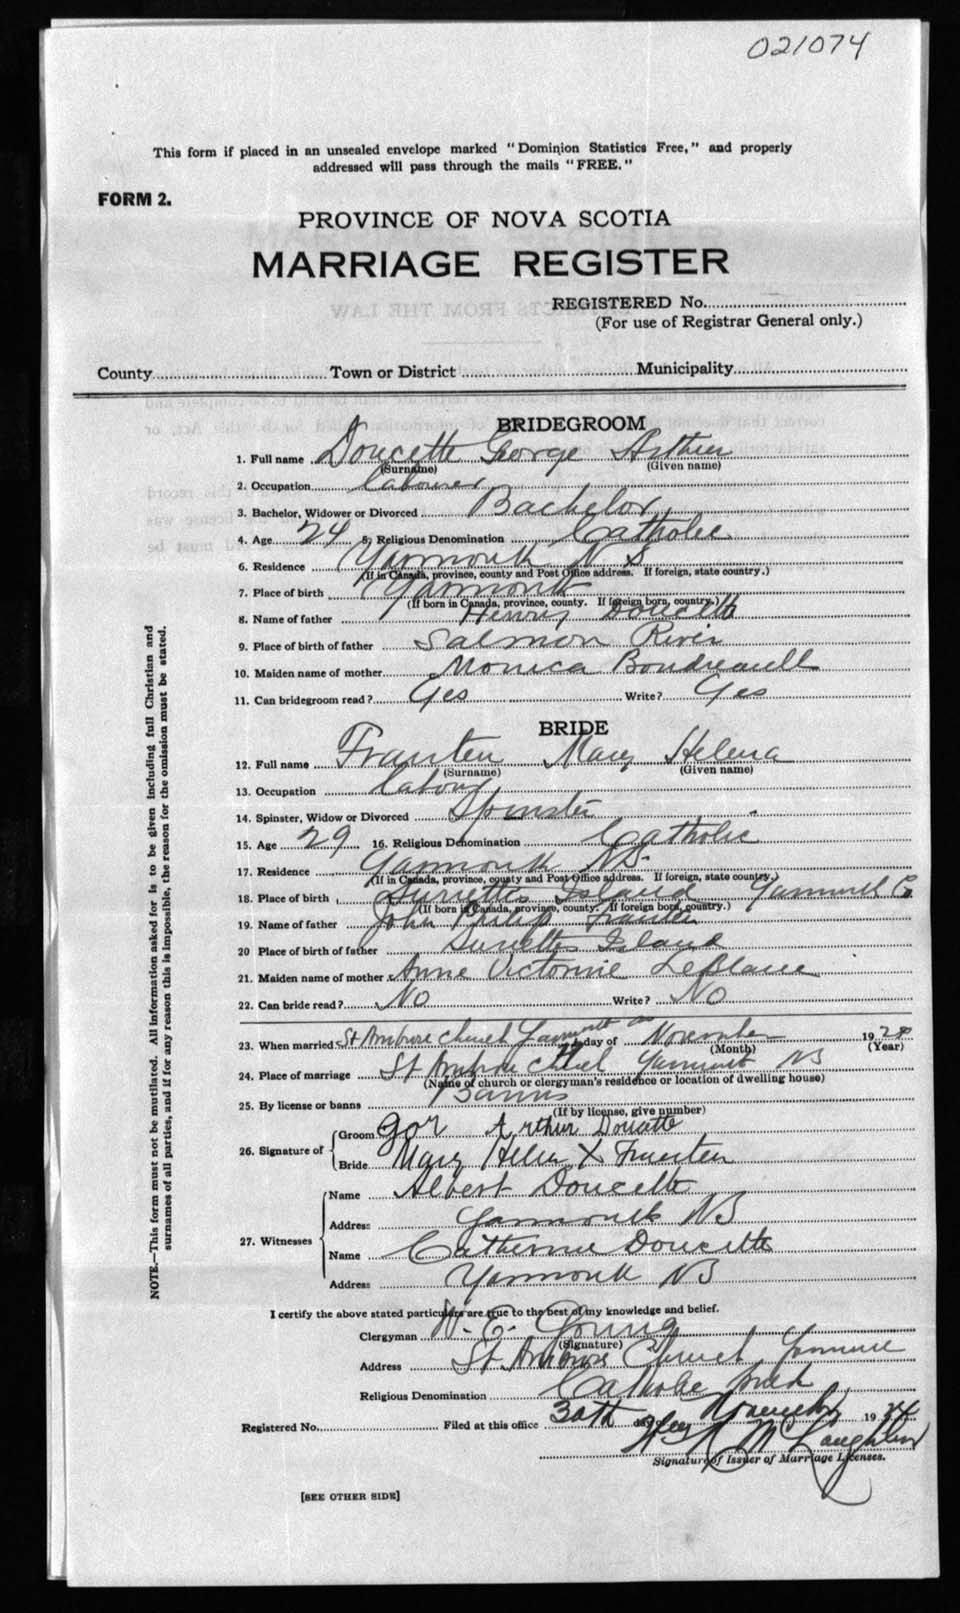 021074
This form if placed in an unsealed envelope marked "Dominion Statistics Free," and properly
addressed will pass through the mails "FREE."
FORM 2.
PROVINCE OF NOVA SCOTIA
MARRIAGE REGISTER
REGISTERED No.
(For use of Registrar General only.)
County Town or District Municipality
BRIDEGROOM
1. Full name Doucette George Arthur
(Surname) (Given name)
2. Occupation Labourer
3. Bachelor, Widower or Divorced Bachelor
4. Age 24 5. Religious Denomination Catholic
6. Residence Yarmouth N S
(If in Canada, province, county and Post Office address. If foreign, state country.)
7. Place of birth Yarmouth
(If born in Canada, province, county. If foreign born, country.)
8. Name of father Henry Doucette
9. Place of birth of father Salmon River
10. Maiden name of mother Monica Boudreault
11. Can bridegroom read? Yes Write? Yes
BRIDE
12. Full name Frauten Mary Helena
(Surname) (Given name)
13. Occupation Labour
14. Spinster, Widow or Divorced Spinster
15. Age 29 16. Religious Denomination Catholic
17. Residence Yarmouth N.S.
(If in Canada, province, county and Post Office address. If foreign, state country.)
18. Place of birth Surettes Island Yarmouth Co
(If born in Canada, province, county. If foreign born, country.)
19. Name of father John Frauten
20 Place of birth of father Surettes Island
21. Maiden name of mother Anne Victorine LeBlanc
22. Can bride read? No Write? No
23. When married St Ambrose Church Yarmouth day of November 19
(Month) (Year)
24. Place of marriage St Ambrose Church Yarmouth NS
(Name of church or clergyman's residence or location of dwelling house)
25. By license or banns Banns
(If by license, give number)
26. Signature of Groom Arthur Doucette
Bride Mary Helen X Frauten
27. Witnesses Name Albert Doucette
Address Yarmouth NS
Name Catherine Doucette
Address Yarmouth NS
I certify the above stated particulars are true to the best of my knowledge and belief.
Clergyman W. E. Young
(Signature)
Address St. Ambrose Church Yarmouth
Religious Denomination Catholic
Registered No. Filed at this office 30th day of November 1934
McLaughlin
Signature of Issuer of Marriage Licenses.
[SEE OTHER SIDE]
NOTE.—This form must not be mutilated. All information asked for is to be given including full Christian and
surnames of all parties, and if for any reason this is impossible, the reason for the omission must be stated.